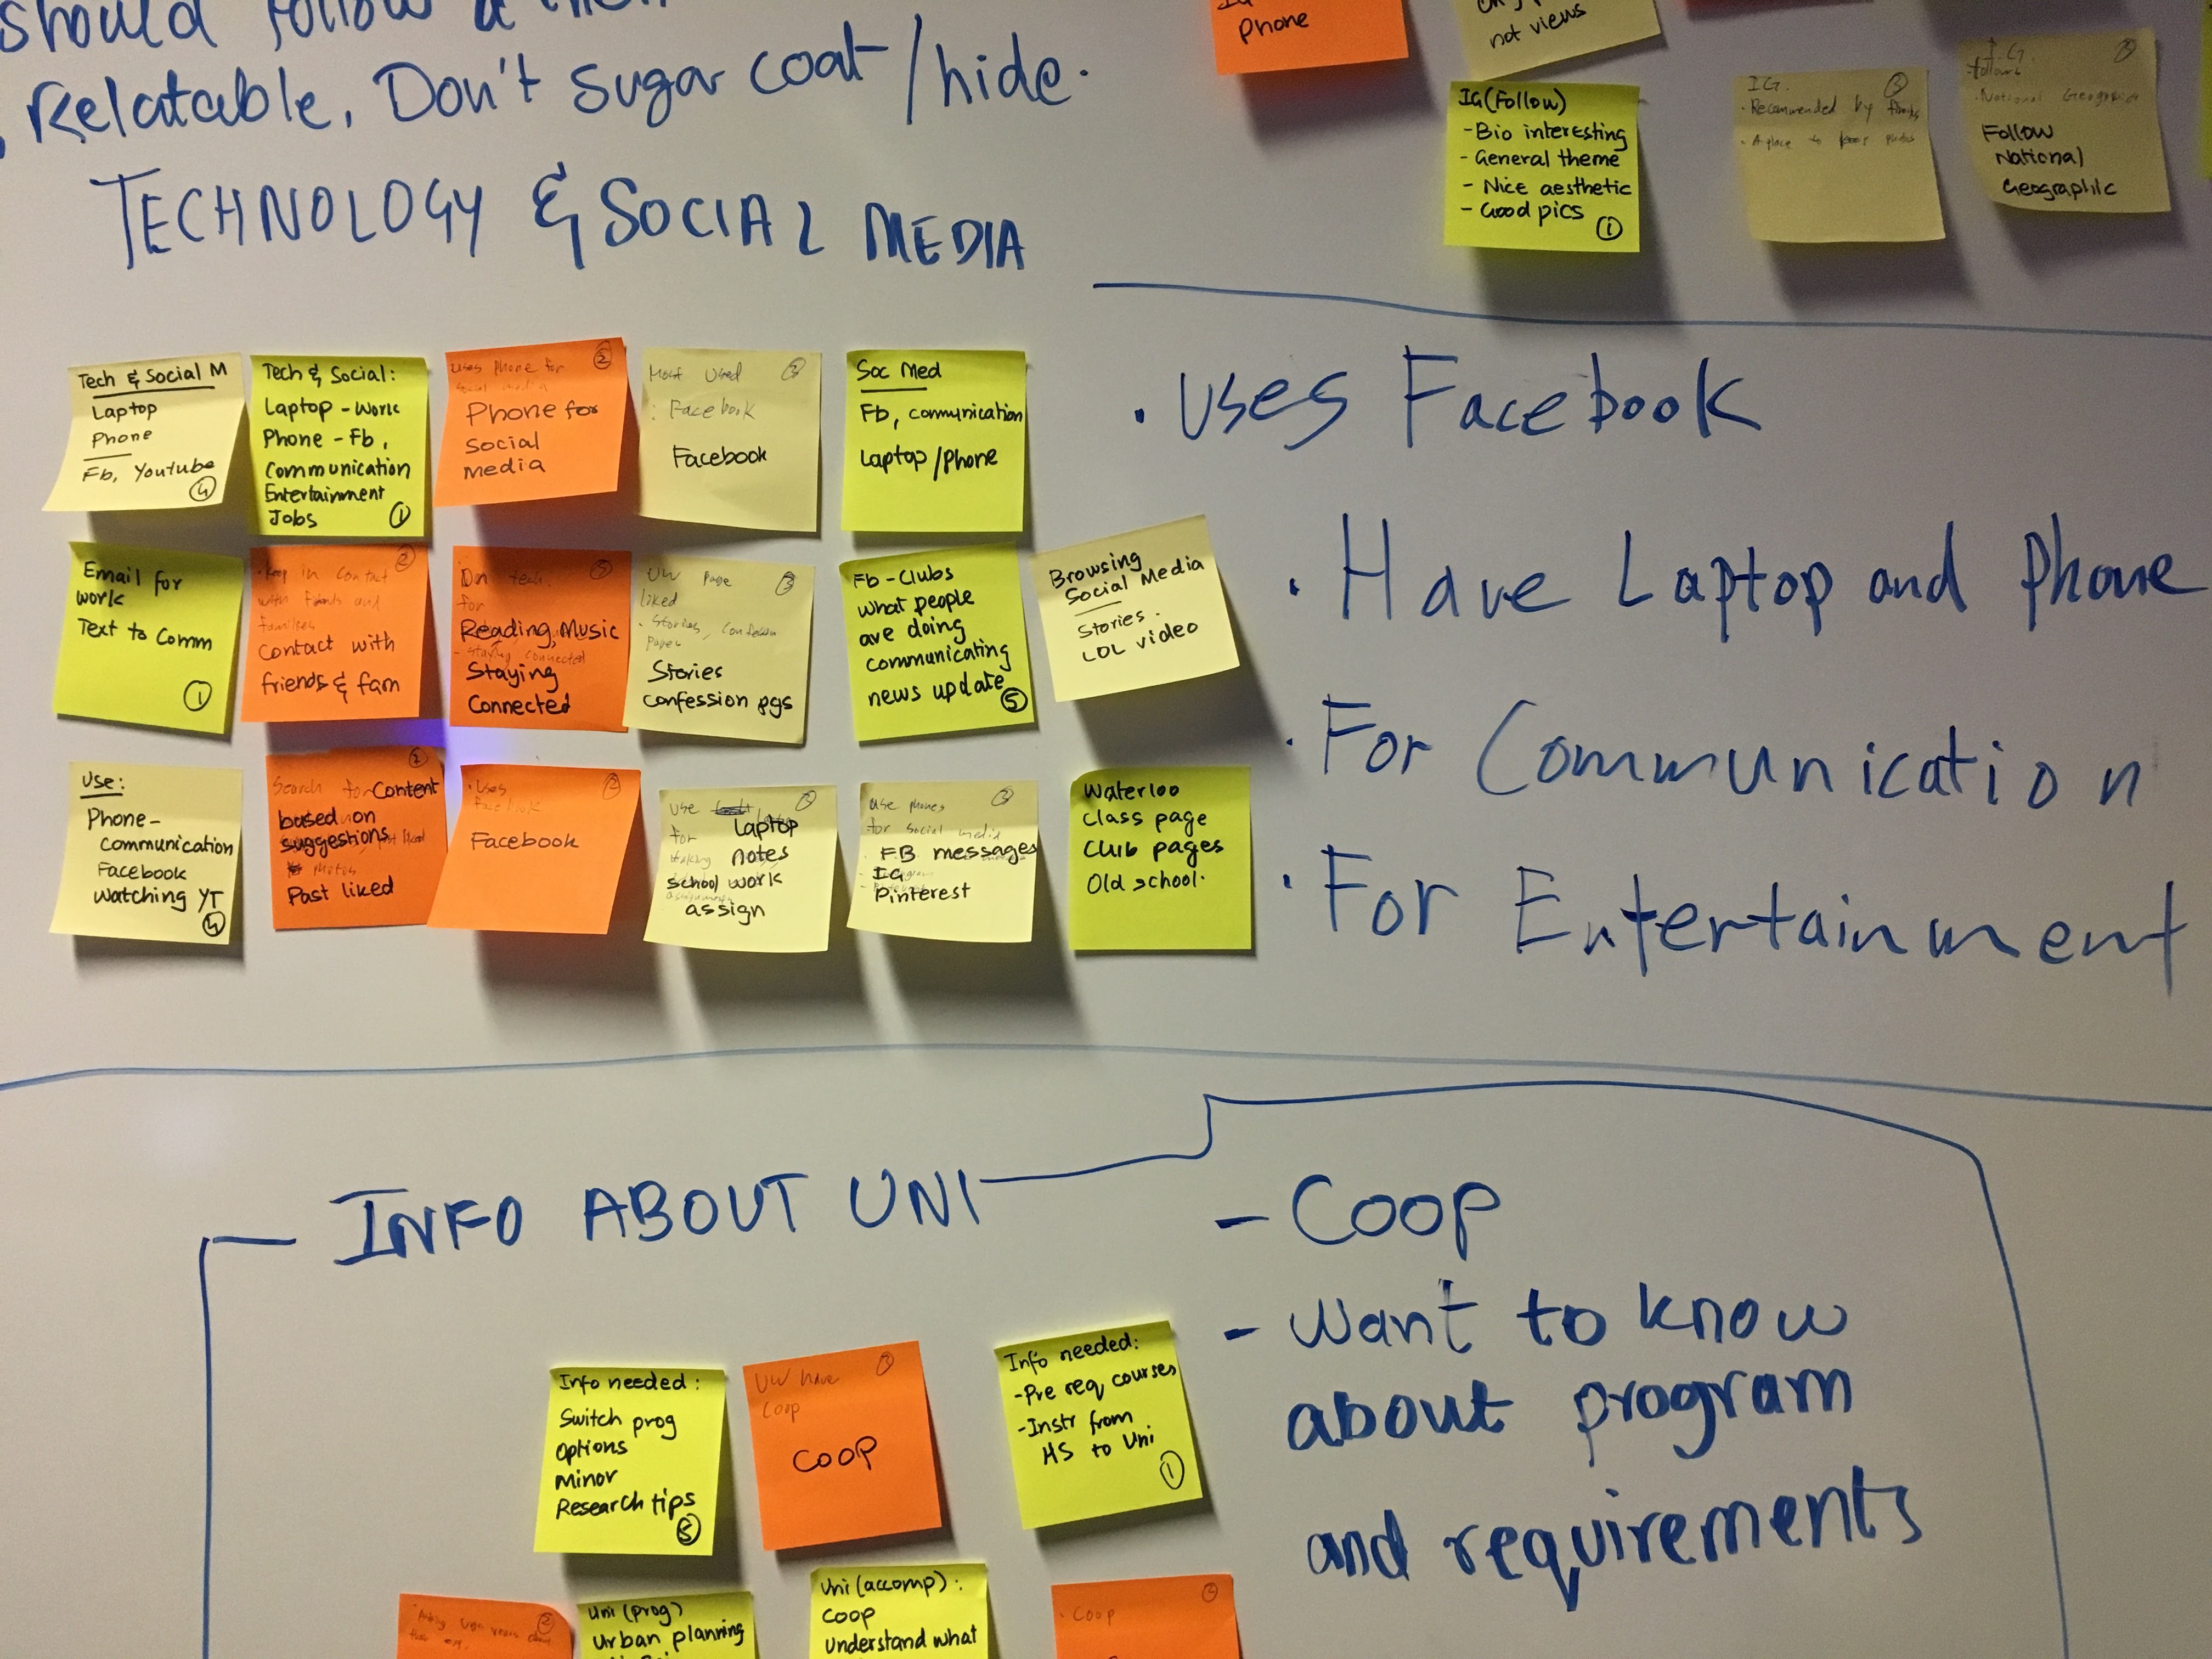 should follow a
Relatable, Don't sugar coat/hide.
TECHNOLOGY & SOCIAL MEDIA
Phone
not views
IG (Follow)
- Bio interesting
- General theme
- Nice aesthetic
- Good pics
1
IG.
· Recommended by
· A place to photos
3
I.G.
National Geographic
Follow
National
Geographic
Tech & Social M
Laptop
Phone
Fb, Youtube
4
Tech & Social:
Laptop - Work
Phone - Fb,
Communication
Entertainment
Jobs
1
uses phone for
social media
2
Phone for
Social
media
Most Used
3
: Facebook
Facebook
Soc Med
Fb, communication
Laptop/Phone
Email for
work
Text to Comm
1
· Keep in contact
with friends and
families
2
Contact with
friends & fam
On tech.
for
Reading, Music
- Staying connected
Staying
Connected
UW Page
liked
3
· Stories, confession
pages
Stories
confession pgs
Fb - Clubs
what people
are doing
communicating
news update
5
Browsing
Social Media
Stories.
LOL video
Use:
Phone -
communication
Facebook
watching YT
4
Search for Content
2
based on
suggestions
photos
Past liked
· Uses
Facebook
2
Facebook
Use
for
Laptop
notes
school work
assign
use phones
for social media
3
FB messages
IG
Pinterest
Waterloo
Class page
Club pages
Old school.
· Uses Facebook
· Have Laptop and phone
· For Communication
· For Entertainment
INFO ABOUT UNI
- Coop
- Want to know
about program
and requirements
Info needed:
Switch prog
options
minor
Research tips
5
UW have
Coop
COOP
Info needed:
- Pre req courses
- Instr from
HS to Uni
1
2
Uni (prog)
Urban planning
Uni (accomp):
COOP
Understand what
· Coop